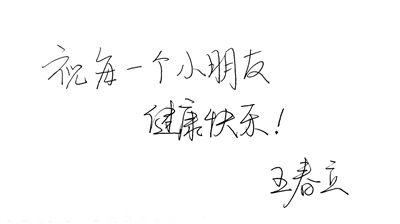 祝每一个小朋友
健康快乐！
王春立